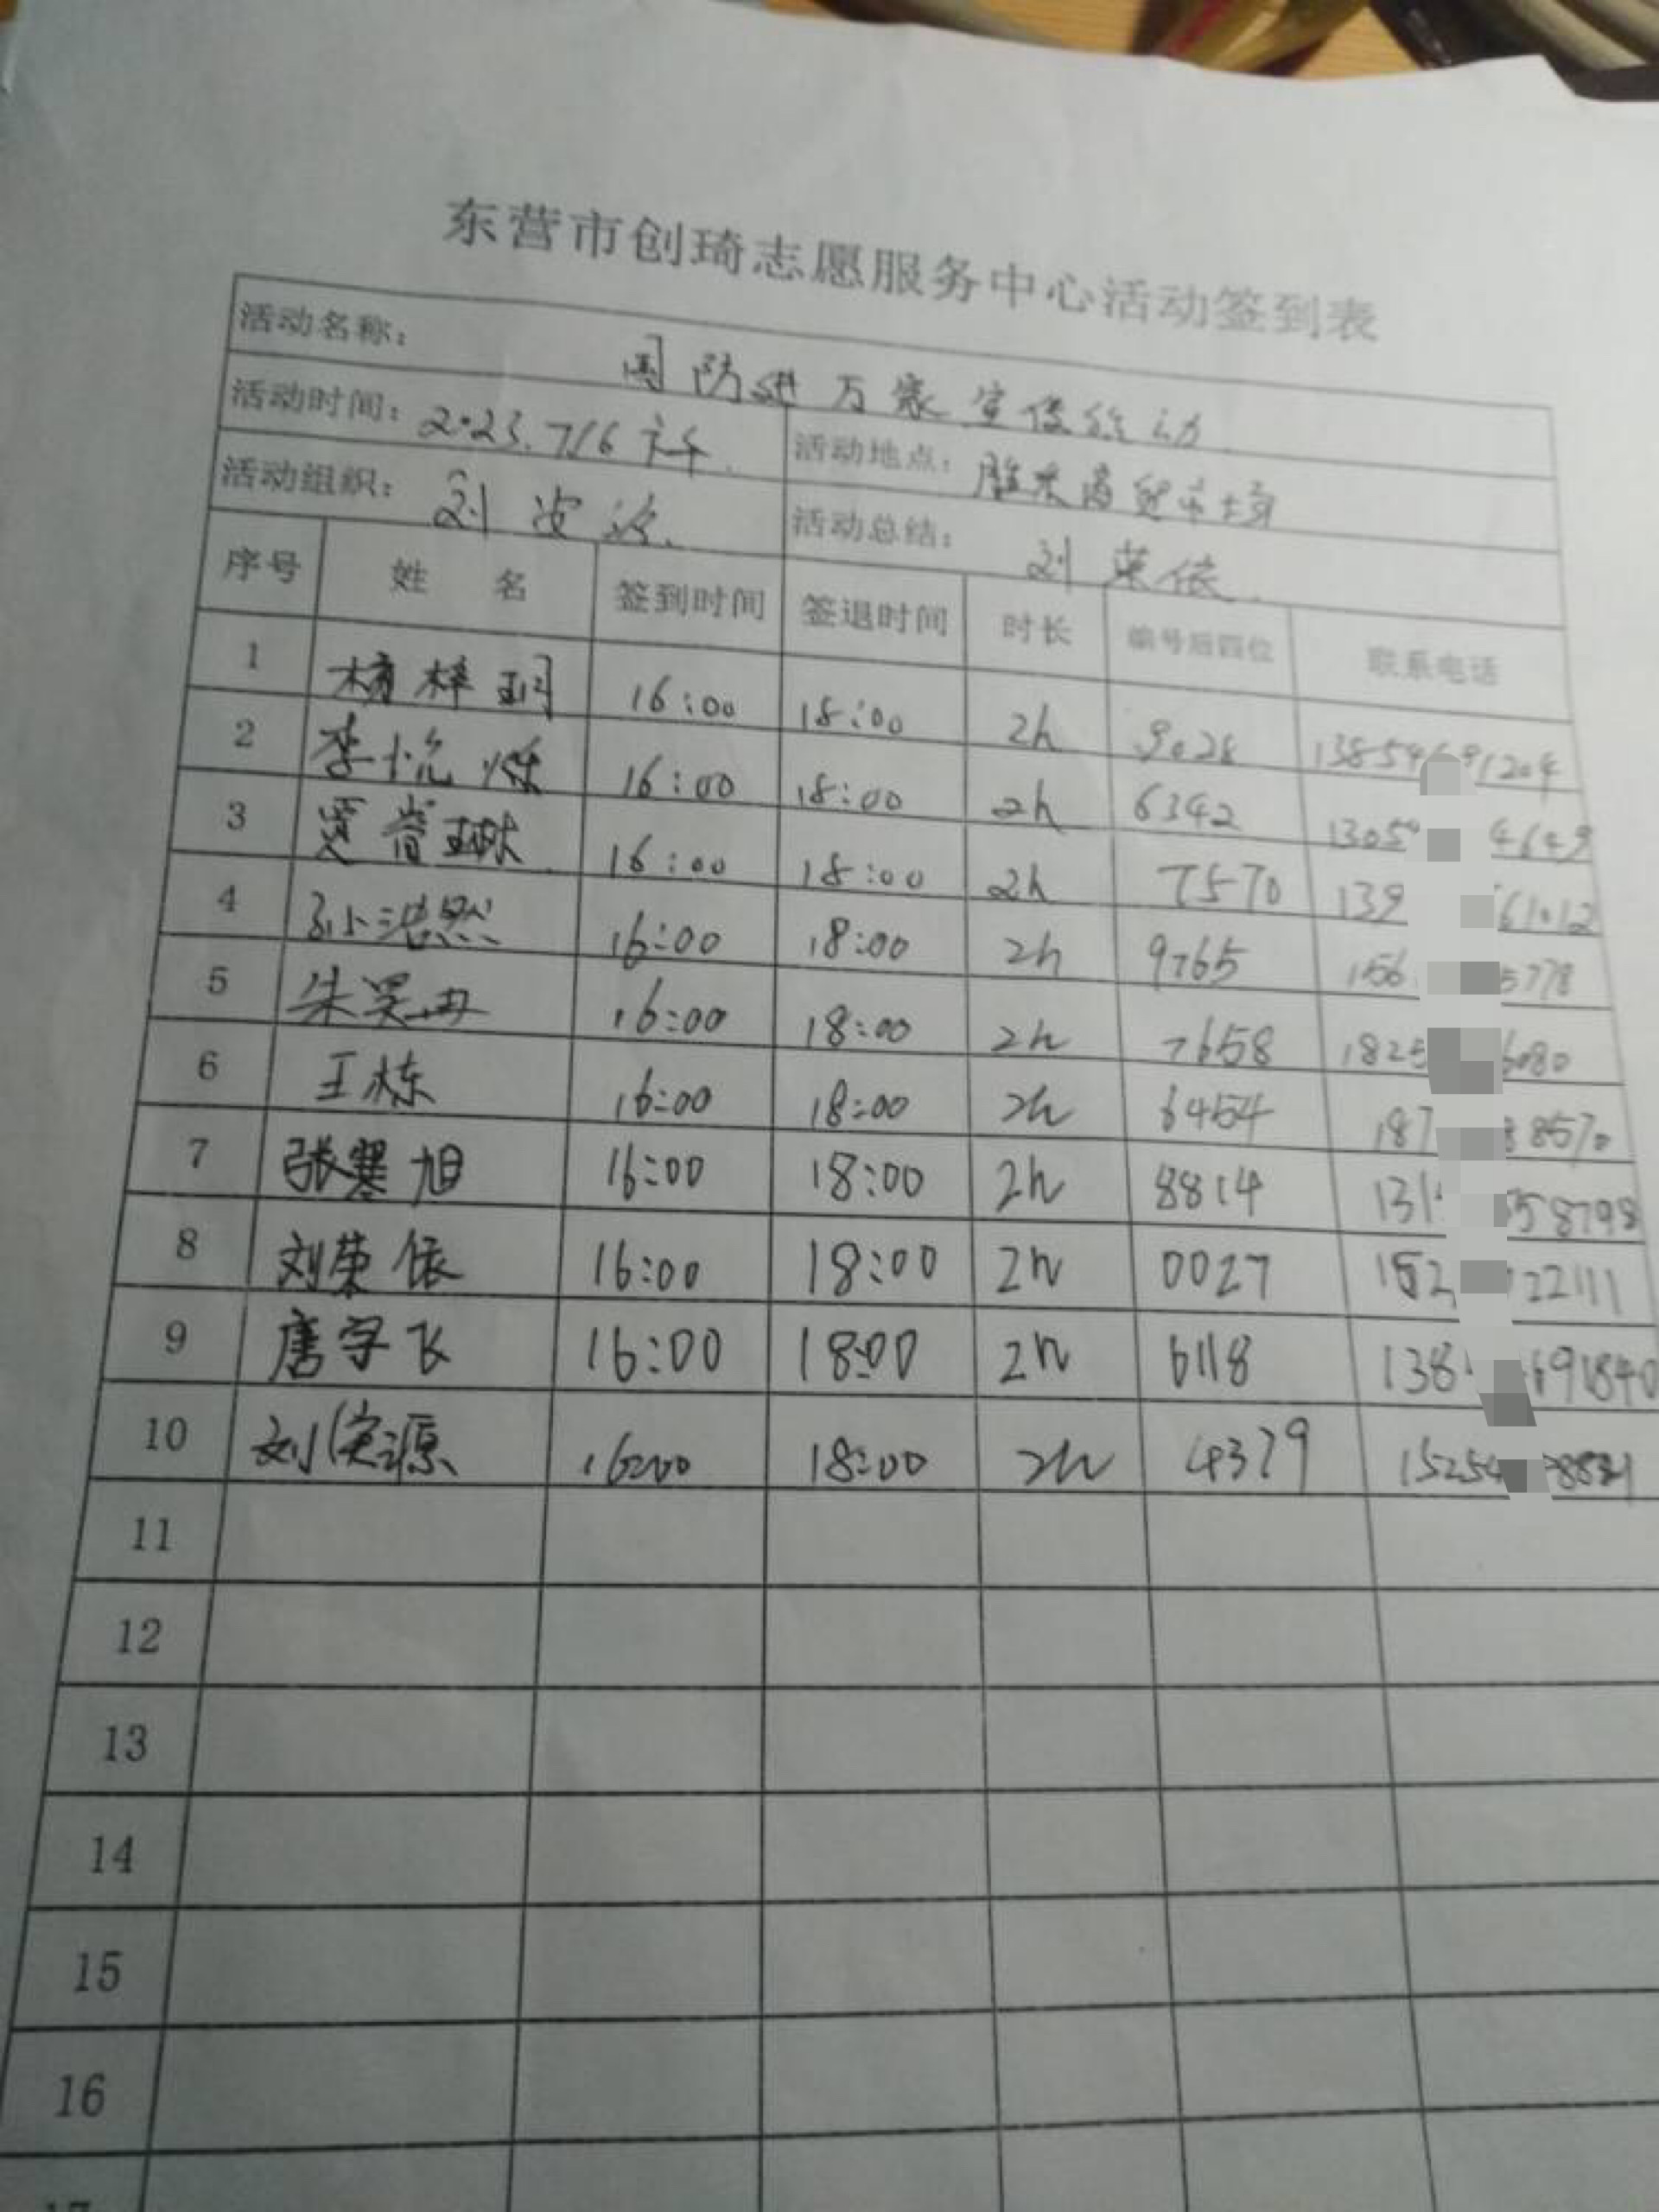 东营市创琦志愿服务中心活动签到表
活动名称： 国防进万家宣传活动
活动时间：2023.7.16 下午 活动地点： 胜东商贸市场
活动组织： 刘波波 活动总结： 刘荣依
序号 姓名 签到时间 签退时间 时长 编号后四位 联系电话
1 杨梓玥 16:00 18:00 2h 9028
2 李悦烁 16:00 18:00 2h 6342 4649
3 贾 16:00 18:00 2h 7570 139 61012
4 孙浩然 16:00 18:00 2h 9765 156 5778
5 朱昊冉 16:00 18:00 2h 7658 1825 6080
6 王栋 16:00 18:00 2h 6454 187 88570
7 张寒旭 16:00 18:00 2h 8814 131 58798
8 刘荣依 16:00 18:00 2h 0027 152 22111
9 唐宇飞 16:00 18:00 2h 6118 138 691840
10 刘 源 16:00 18:00 2h 4379 15254
11
12
13
14
15
16